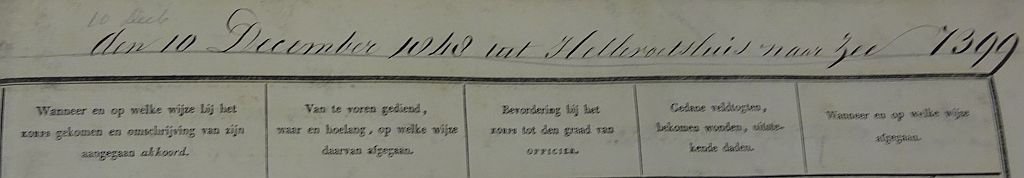 10 Decb
den 10 December 1848 uit Hellevoetsluis naar Zee 7399
Wanneer en op welke wijze bij het
KORPS gekomen en omschrijving van zijn
aangegaan akkoord.
Van te voren gediend,
waar en hoelang, op welke wijze
daarvan afgegaan.
Bevordering bij het
KORPS tot den graad van
OFFICIER.
Gedane veldtogten,
bekomen wonden, uitste-
kende daden.
Wanneer en op welke wijze
afgegaan.